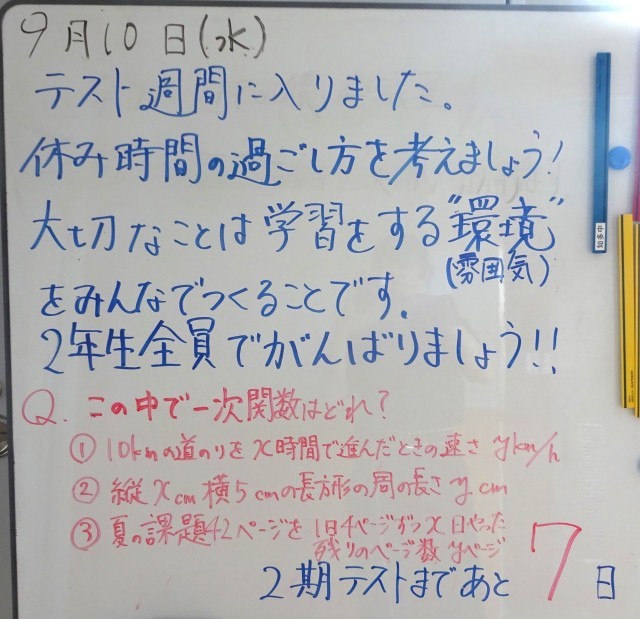 9月10日(水)
テスト週間に入りました。
休み時間の過ごし方を考えましょう!
大切なことは学習をする"環境"
(雰囲気)
をみんなでつくることです。
2年生全員でがんばりましょう!!
Q. この中で一次関数はどれ?
① 10kmの道のりをx時間で進んだときの速さ ykm/h
② 縦xcm 横5cmの長方形の周の長さ y cm
③ 夏の課題42ページを 1日4ページずつx日やった
残りのページ数 yページ
2期テストまであと 7日